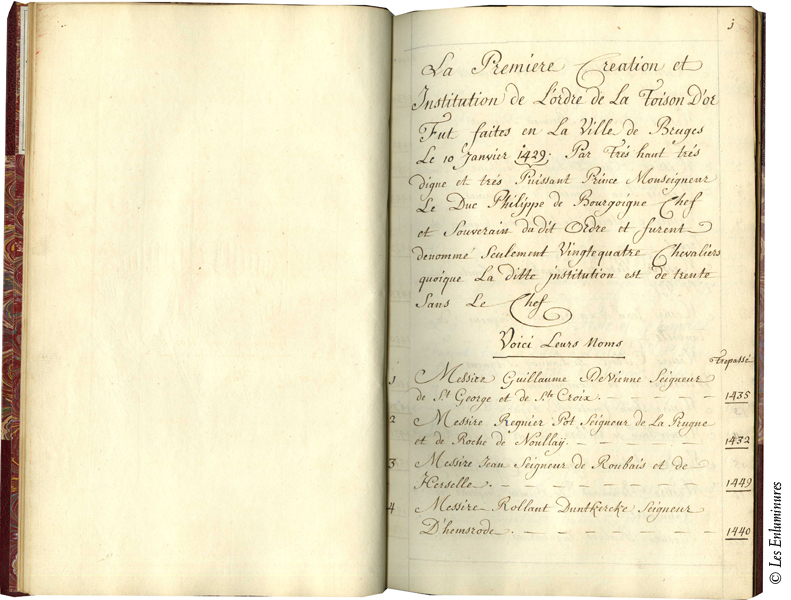 j
La Premiere Creation et
Institution de L'ordre de La Toison D'or
Fut faites en La Ville de Bruges
Le 10 Janvier 1429; Par Trés haut trés
digne et trés Puissant Prince Monseigneur
Le Duc Philippe de Bourgoigne Chef
et Souverain du dit Ordre et furent
denommé Seulement Vingtequatre Chevaliers
quoique La ditte jnstitution est de trente
Sans Le Chef
Voici Leurs Noms
Trepassé
1 Messire Guillaume DeVienne Seigneur
de St George et de Ste Croix. 1435
2 Messire Regnier Pot Seigneur de La Prugne
et de Roche de Noullay. 1432
3 Messire Jean Seigneur de Roubais et de
Herselle. 1449
4 Messire Rollant Duntkircke Seigneur
D'hemsrode. 1440
© Les Enluminures